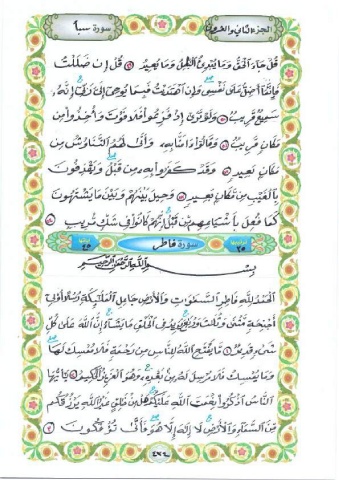 الجزء الثاني والعشرون
سورة سبأ
قُلْ جَاءَ الْحَقُّ وَمَا يُبْدِئُ الْبَاطِلُ وَمَا يُعِيدُ قُلْ إِن ضَلَلْتُ
فَإِنَّمَا أَضِلُّ عَلَىٰ نَفْسِي وَإِنِ اهْتَدَيْتُ فَبِمَا يُوحِي إِلَيَّ رَبِّي إِنَّهُ
سَمِيعٌ قَرِيبٌ وَلَوْ تَرَىٰ إِذْ فَزِعُوا فَلَا فَوْتَ وَأُخِذُوا مِن
مَّكَانٍ قَرِيبٍ وَقَالُوا آمَنَّا بِهِ وَأَنَّىٰ لَهُمُ التَّنَاوُشُ مِن
مَّكَانٍ بَعِيدٍ وَقَدْ كَفَرُوا بِهِ مِن قَبْلُ وَيَقْذِفُونَ
بِالْغَيْبِ مِن مَّكَانٍ بَعِيدٍ وَحِيلَ بَيْنَهُمْ وَبَيْنَ مَا يَشْتَهُونَ
كَمَا فُعِلَ بِأَشْيَاعِهِم مِّن قَبْلُ إِنَّهُمْ كَانُوا فِي شَكٍّ مُّرِيبٍ
سورة فاطر
بِسْمِ اللَّهِ الرَّحْمَٰنِ الرَّحِيمِ
الْحَمْدُ لِلَّهِ فَاطِرِ السَّمَاوَاتِ وَالْأَرْضِ جَاعِلِ الْمَلَائِكَةِ رُسُلًا أُولِي
أَجْنِحَةٍ مَّثْنَىٰ وَثُلَاثَ وَرُبَاعَ يَزِيدُ فِي الْخَلْقِ مَا يَشَاءُ إِنَّ اللَّهَ عَلَىٰ كُلِّ
شَيْءٍ قَدِيرٌ مَّا يَفْتَحِ اللَّهُ لِلنَّاسِ مِن رَّحْمَةٍ فَلَا مُمْسِكَ لَهَا
وَمَا يُمْسِكْ فَلَا مُرْسِلَ لَهُ مِن بَعْدِهِ وَهُوَ الْعَزِيزُ الْحَكِيمُ يَا أَيُّهَا
النَّاسُ اذْكُرُوا نِعْمَتَ اللَّهِ عَلَيْكُمْ هَلْ مِنْ خَالِقٍ غَيْرُ اللَّهِ يَرْزُقُكُم
مِّنَ السَّمَاءِ وَالْأَرْضِ لَا إِلَٰهَ إِلَّا هُوَ فَأَنَّىٰ تُؤْفَكُونَ